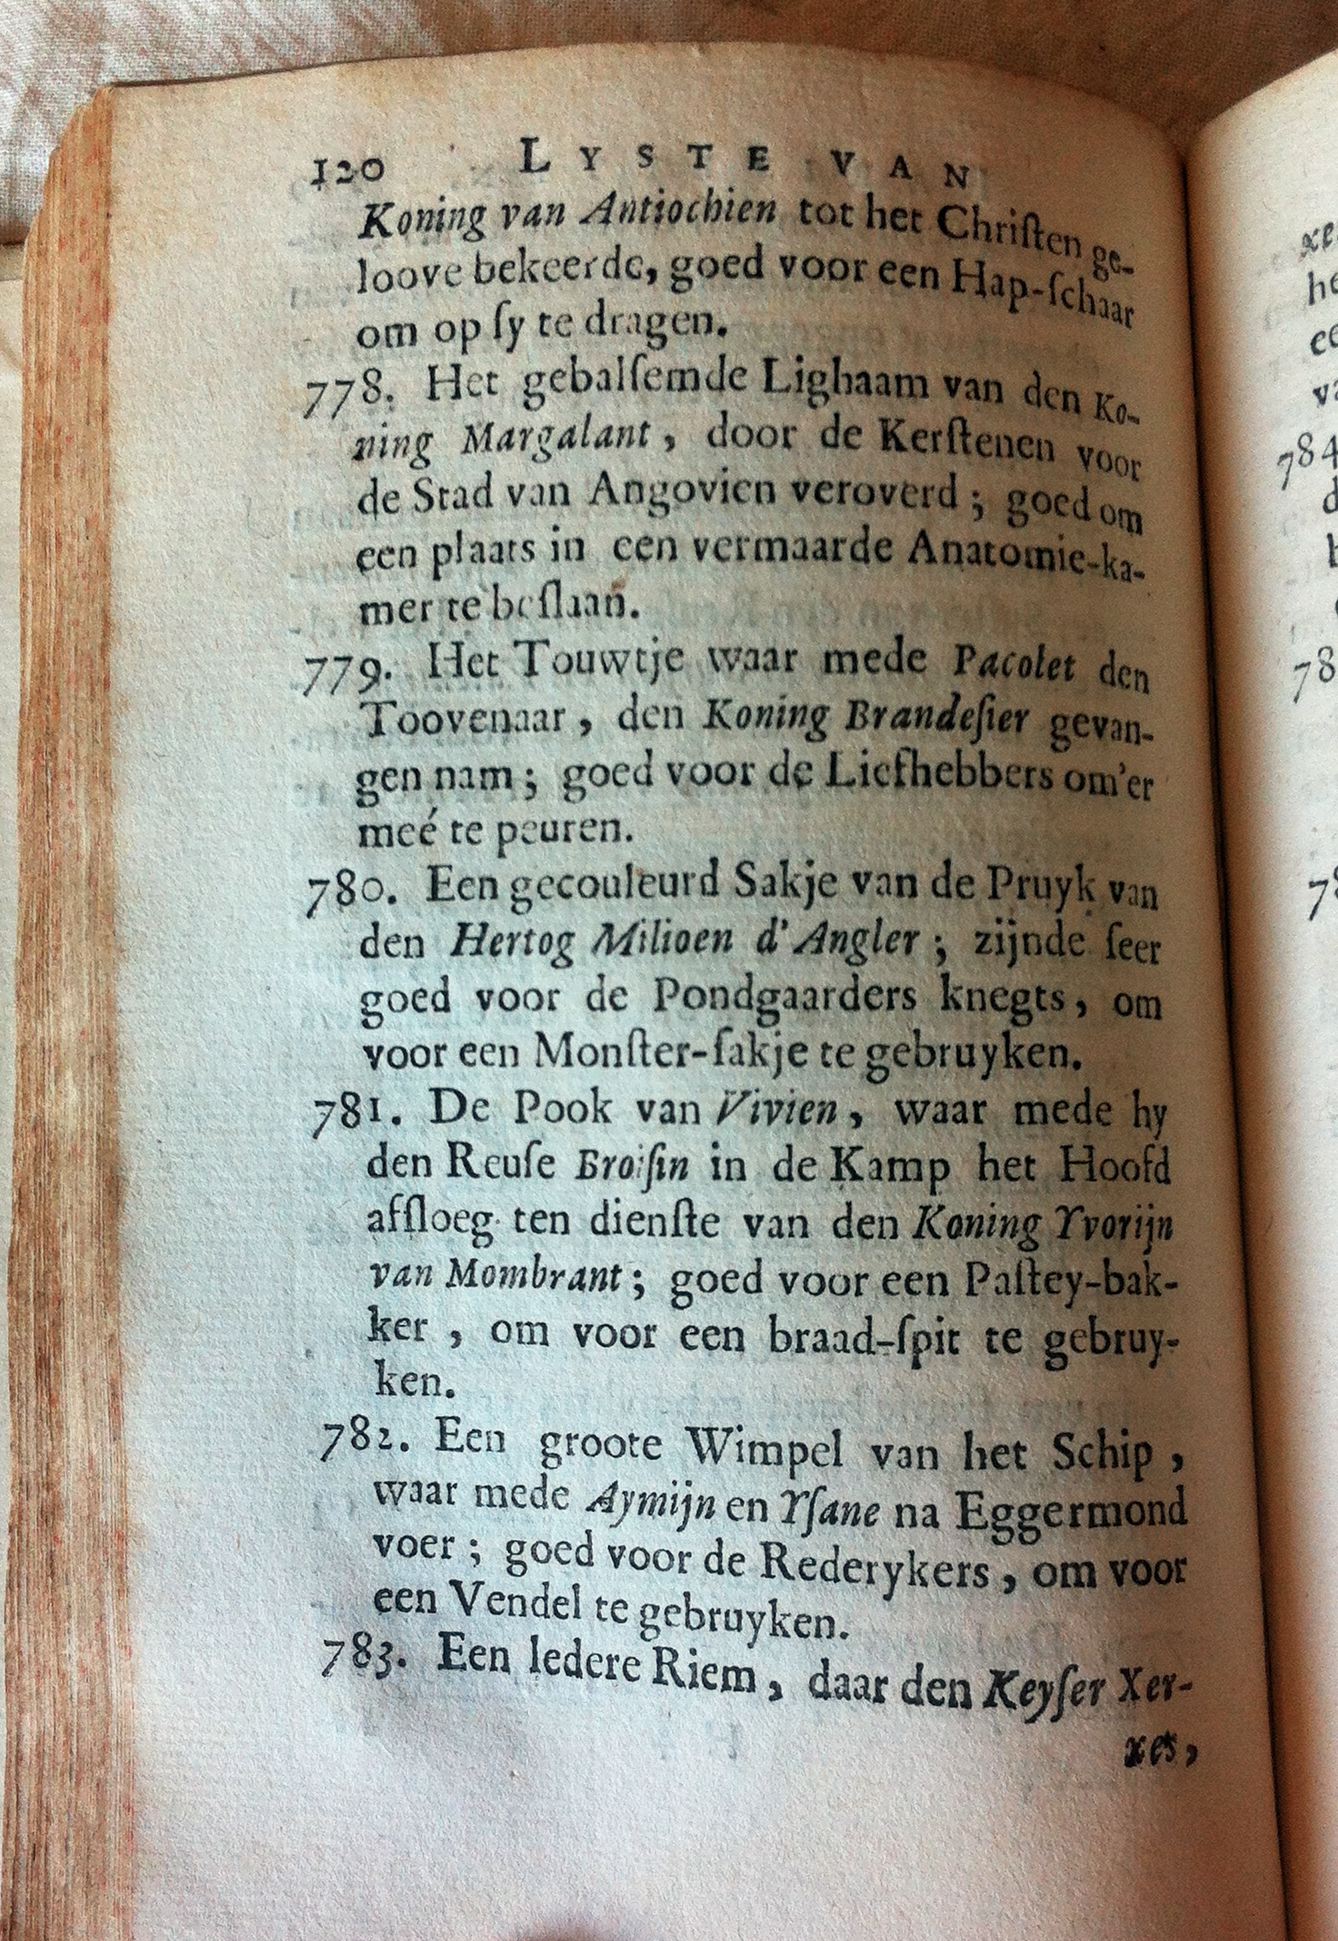 120 LYSTE VAN
Koning van Antiochien tot het Chriſten ge-
loove bekeerde, goed voor een Hap-ſchaar
om op ſy te dragen.
778. Het gebalſemde Lighaam van den Ko-
ning Margalant, door de Kerſtenen voor
de Stad van Angovien veroverd; goed om
een plaats in een vermaarde Anatomie-ka-
mer te beſlaan.
779. Het Touwtje waar mede Pacolet den
Toovenaar, den Koning Brandeſier gevan-
gen nam; goed voor de Liefhebbers om'er
meé te peuren.
780. Een gecouleurd Sakje van de Pruyk van
den Hertog Milioen d'Angler; zijnde ſeer
goed voor de Pondgaarders knegts, om
voor een Monſter-ſakje te gebruyken.
781. De Pook van Vivien, waar mede hy
den Reuſe Broiſin in de Kamp het Hoofd
afſloeg ten dienſte van den Koning Yvorijn
van Mombrant; goed voor een Paſtey-bak-
ker, om voor een braad-ſpit te gebruy-
ken.
782. Een groote Wimpel van het Schip,
waar mede Aymijn en Yſane na Eggermond
voer; goed voor de Rederykers, om voor
een Vendel te gebruyken.
783. Een ledere Riem, daar den Keyſer Xer-
xes,
xe
he
ee
va
784
d
78